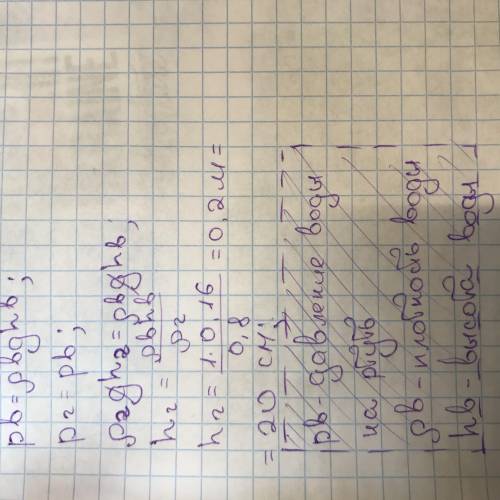 рв=ρвghв;
рг=рв;
ρгghг=ρвghв;
hг=ρвhв/ρг
hг=1·0,16/0,8=0,2м=
=20 см;
рв-давление воды
на ртуть
ρв-плотность воды
hв-высота воды